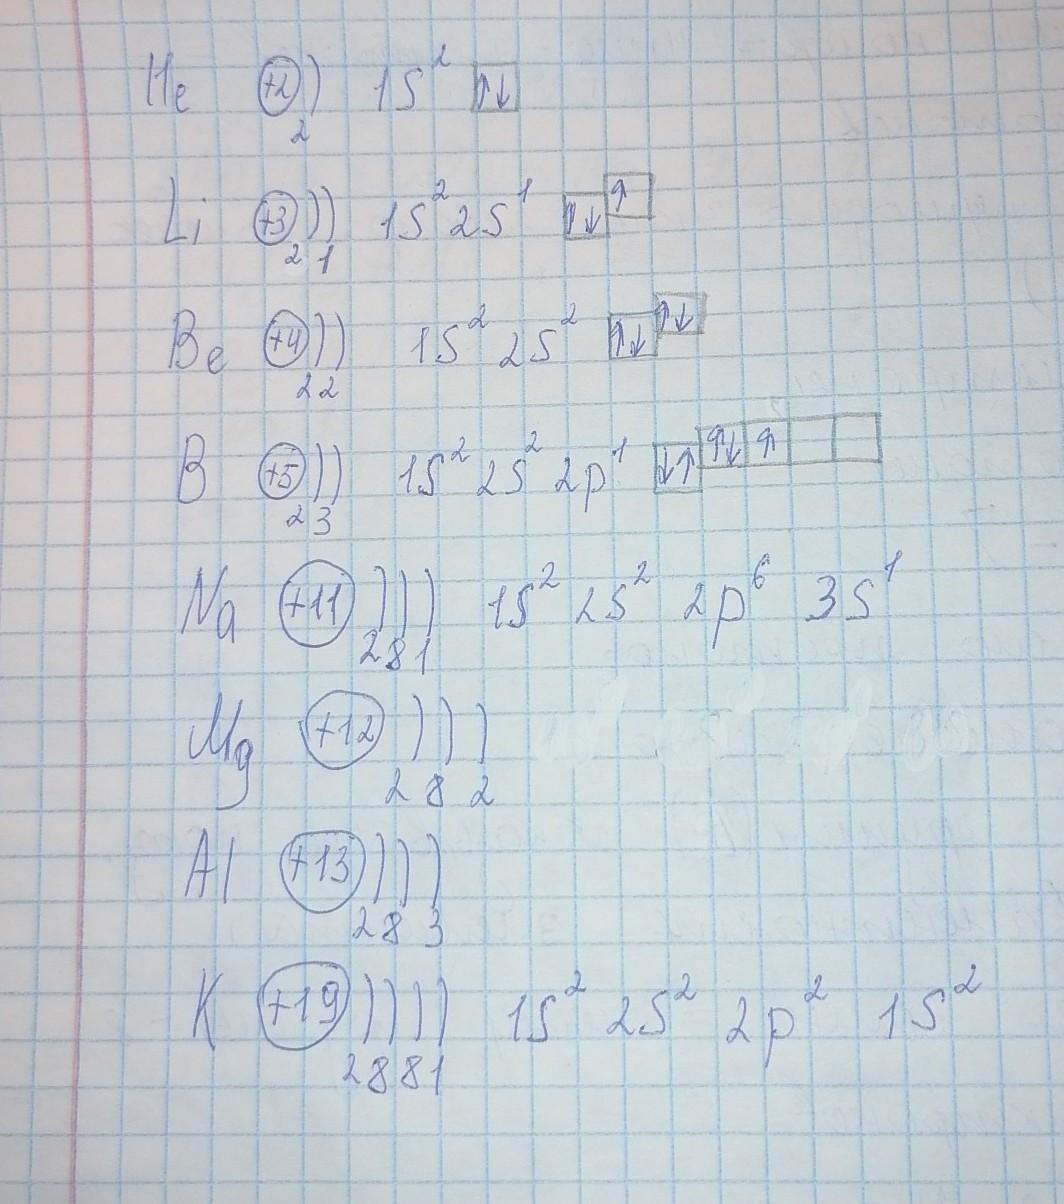 He +2 ) 1S² ↑↓
2
Li +3 ) ) 1S² 2S¹ ↑↓ ↑
2 1
Be +4 ) ) 1S² 2S² ↑↓ ↑↓
2 2
B +5 ) ) 1S² 2S² 2p¹ ↓↑ ↑↓ ↑
2 3
Na +11 ) ) ) 1S² 2S² 2p⁶ 3S¹
2 8 1
Mg +12 ) ) )
2 8 2
Al +13 ) ) )
2 8 3
K +19 ) ) ) ) 1S² 2S² 2p² 1S²
2 8 8 1